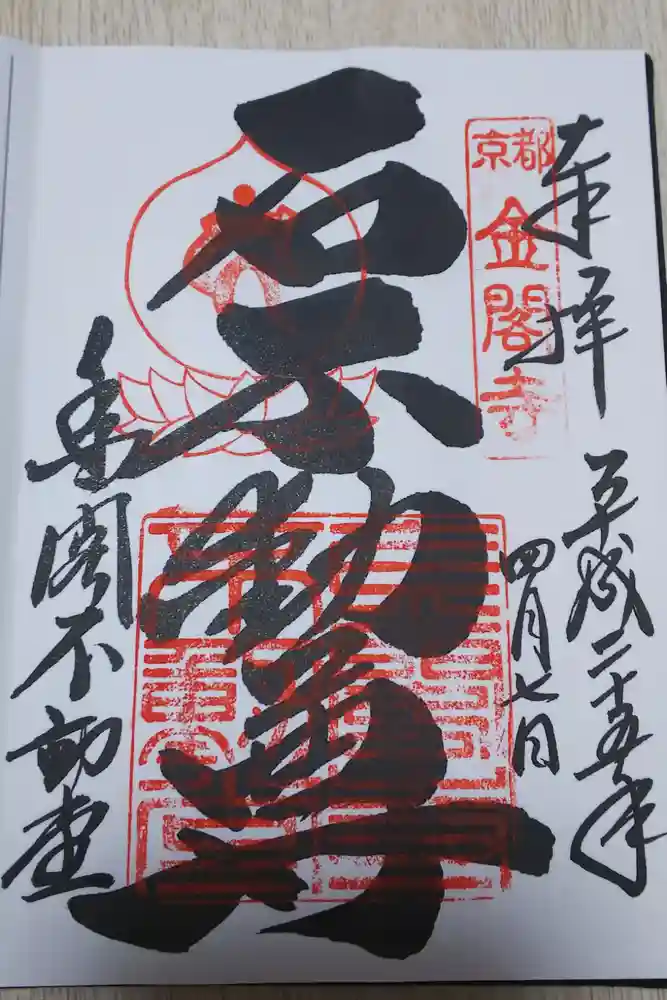 奉拝
平成二十五年
四月七日
京都
金閣寺
石不動尊
金閣不動堂